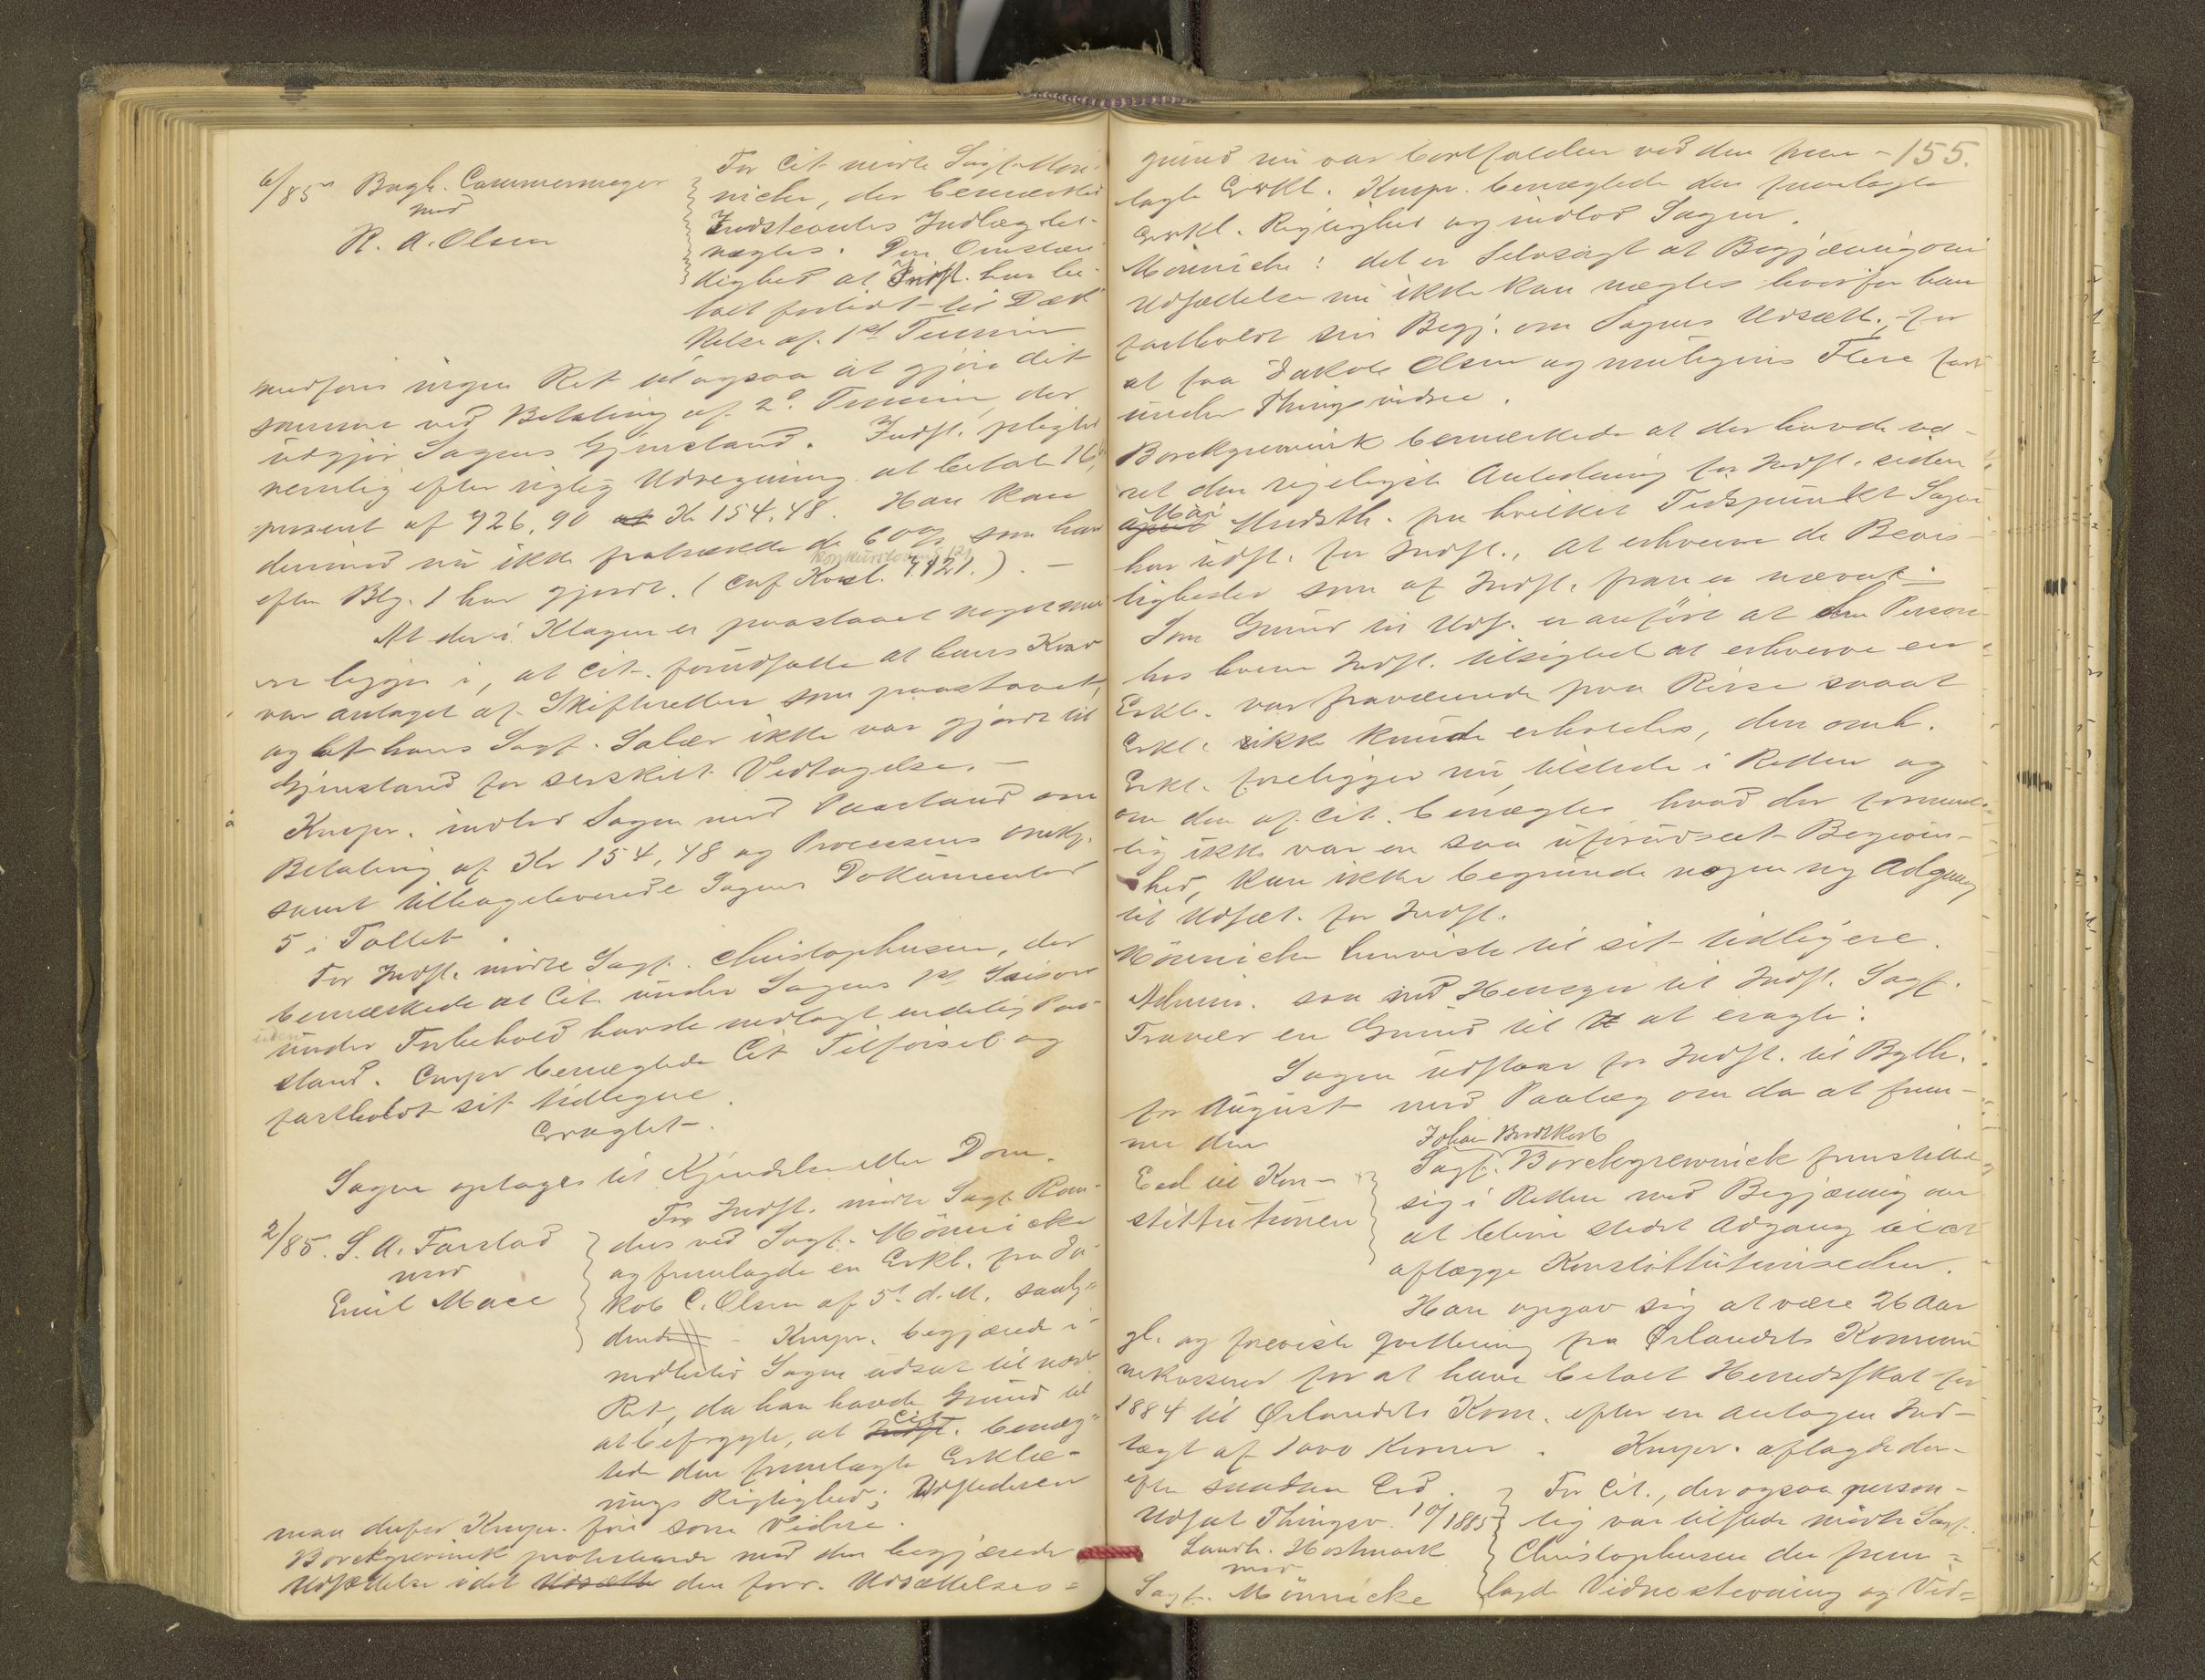 6/85 Bagh. Cammermeyer
mod
R. A. Olsen
For Cit. mødte Sagf. Mön-
niche, der bemærked
Indstevntes Indlæg be-
nægtes. Den Omstæn-
dighed at Indst. har be-
talt forlidt til Dæk-
kelse af 1st Termin
medfører ingen Ret til ogsaa at gjøre det
samme ved Betaling af 2d Termin, der
udgjør Sagens Gjenstand. Indst. pligter
nemlig efter rigtig Udregning at betale 16
procent af 926,90 Kr 154,48. Han kan
dermed nu ikke fratrække de 60 som han
efter Blg. 1 har gjordt. (Cnf Konkl. § 121.) . —
Konkursloven 121
At der i Klagen er paastaaet noget mer
ligger i, at Cit. forudsatte at hans Krav
var antaget af Skifteretten som paastaaet,
og at hans Sagf. Salær ikke var gjordt til
Gjenstand for særskilt Vedtagelse. —
Kmpr. indlod Sagen med Paastand om
Betaling af Kr 154,48 og Processens Omk.
samt tilbageleverede Sagens Dokumenter
5 i Tallet.
For Indst. mødte Sagf. Christophersen, der
bemærkede at Cit. under Sagens 1st Session
uden
under Forbehold havde nedlagt endelig Paa-
stand. Cmpr benægtede Cit Tilførsel og
fastholdt sit tidligere.
Eragtet.
Sagen optages til Kjendelse eller Dom.
2/85. S. A. Farstad
mod
Emil Mace
For Indst. mødte Sagf. Ran-
des ved Sagf. Mönniche
og fremlagde en Erkl. fra Ja-
kob C. Olsen af 5t d. M. saaly-
dende — Kmpr. begjærede i-
midlertid Sagen udsat til næste
Ret, da han havde Grund til
at befrygte, at Indst. Cit. benæg-
tede den fremlagte Erklæ-
rings Rigtighed; Udstedelsen
maa derfor Kmpr. føre som Vidne.
Borchgrevinck protesterede mod den begjærede
Udsættelse idet Udsætte den forr. Udsættelses-
155.
grund nu var bortfalden ved den frem-
lagte Erkl. Kmpr. benægtede den fremlagte
Erkl. Rigtighed og indlod Sagen.
Mönniche: det er Selvsagt at Begjæring om
Udsættelse nu ikke kan nægtes hvorfor han
fastholdt sin Begj. om Sagens Udsætt. for
at faa Jakob Olsen og muligens Flere ført
under Thingsvidne.
Borchgrevink bemærkede at der havde væ-
ret den rigeligste Anledning for Indst. siden
Mai Maaneds fra hvilket Tidspunkt Sagen
har udst. for Indst., at erhverve de Bevis-
ligheder som af Indst. frem er nævnt.
Som Grund til Uds. er anført at den Person
hos hvem Indst. tilsigted at erhverve en
Erkl. var fraværende paa Reise saaat
Erkl. ikke kunde erholdes, den omh.
Erkl. foreligger nu tilstede i Retten og
om den af Cit. benægtes hvad der forment-
lig ikke var en saa uforudseet Begiven-
hed, kan ikke begrunde nogen ny Adgang
til Udsæt. for Indst.
Mönniche henviste til sit tidligere.
Admin. saa med Hensyn til Indst. Sagf.
Fravær en Grund til at eragte:
Sagen udstaar for Indst. til Bygth.
for August med Paalæg om da at frem-
me den
Eed til Kon-
stitutionen
Johan Brodtkorb
Sagf. Borchgrewinck fremstillede
sig i Retten med Begjæring om
at blive stedet Adgang til at
aflægge Konstitutionseden.
Han opgav sig at være 26 Aar
gl. og foreviste Qvittering fra Ørlandets Kommu-
nekasserer for at have betalt Herredsskat for
1884 til Ørlandets Kom. efter en antagen Ind-
tægt af 1000 Kroner. Kmpr. aflagde der-
efter saadan Eed.
Udsat Thingsv. 10/1885
Landh. Hostmark
mod
Sagf. Mönnicke
For Cit., der ogsaa person-
lig var tilstede mödte Sagf.
Christophersen der frem-
lagde Vidnestevning og Vid-